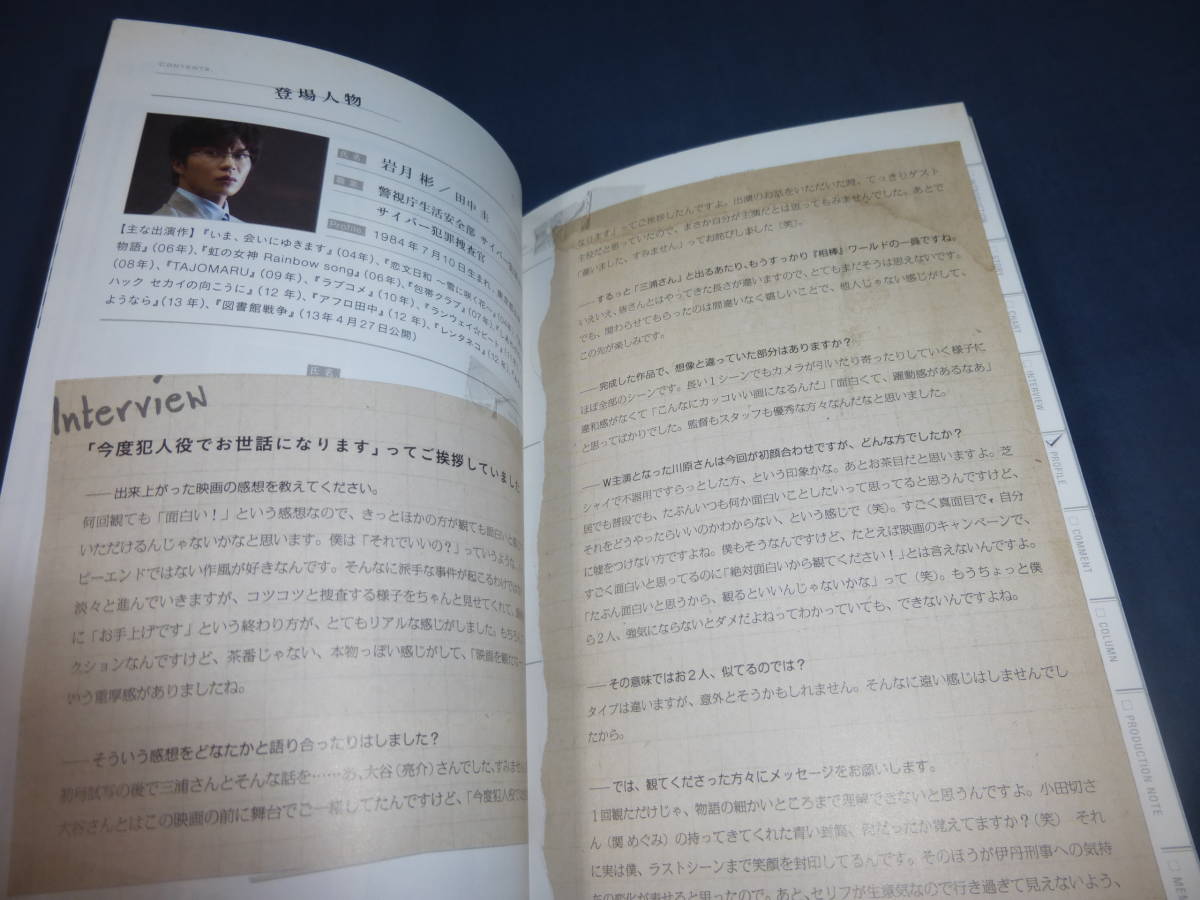 CONTENTS.
登場人物
氏名
岩月 彬／田中 圭
職業
警視庁生活安全部 サイバー
サイバー犯罪捜査官
Profile
1984年7月10日生まれ、東京都
【主な出演作】『いま、会いにゆきます』(04年)、『恋文日和 〜雪に咲く花〜』
物語』(06年)、『虹の女神 Rainbow song』(06年)、『包帯クラブ』(07年)、
(08年)、『TAJOMARU』(09年)、『ラブコメ』(10年)、『ランウェイ☆ビート』
ハック セカイの向こうに』(12年)、『アフロ田中』(12年)、『レンタネコ』(12年)、
ようなら』(13年)、『図書館戦争』(13年4月27日公開)
氏名
Interview
「今度犯人役でお世話になります」ってご挨拶していました
――出来上がった映画の感想を教えてください。
何回観ても「面白い！」という感想なので、きっとほかの方が観ても面白いと
いただけるんじゃないかなと思います。僕は「それでいいの？」っていうような、
ピーエンドではない作風が好きなんです。そんなに派手な事件が起こるわけでは
淡々と進んでいきますが、コツコツと捜査する様子をちゃんと見せてくれて、
に「お手上げです」という終わり方が、とてもリアルな感じがしました。もちろん
クションなんですけど、茶番じゃない、本物っぽい感じがして、「映画を観た
いう重厚感がありましたね。
――そういう感想をどなたかと語り合ったりはしました？
初号試写の後で三浦さんとそんな話を……あ、大谷(亮介)さんでした、すみません
大谷さんとはこの映画の前に舞台でご一緒してたんですけど、「今度犯人役で
なります」ってご挨拶したんですよ。出演のお話をいただいた時、てっきりゲスト
主役だと思っていたので、まさか自分が主演だとは思ってもみませんでした。あとで
「違いました、すみません」ってお詫びしました(笑)。
――するっと「三浦さん」と出るあたり、もうすっかり『相棒』ワールドの一員ですね。
いえいえ、皆さんとはやってきた長さが違いますので、とてもまだそうは思えないです。
でも、関わらせてもらったのは間違いなく嬉しいことで、他人じゃない感じがして、
この先が楽しみです。
――完成した作品で、想像と違っていた部分はありますか？
ほぼ全部のシーンです。長い1シーンでもカメラが引いたり寄ったりしていく様子に
違和感がなくて「こんなにカッコいい画になるんだ」「面白くて、躍動感があるなあ」
と思ってばかりでした。監督もスタッフも優秀な方々なんだなと思いました。
――W主演となった川原さんは今回が初顔合わせですが、どんな方でしたか？
シャイで不器用ですらっとした方、という印象かな。あとお茶目だと思いますよ。芝
居でも普段でも、たぶんいつも何か面白いことしたいって思ってると思うんですけど、
それをどうやったらいいのかわからない、という感じで(笑)。すごく真面目で、自分
に嘘をつけない方ですよね。僕もそうなんですけど、たとえば映画のキャンペーンで、
すごく面白いと思ってるのに「絶対面白いから観てください！」とは言えないんですよ。
「たぶん面白いと思うから、観るといいんじゃないかな」って(笑)。もうちょっと僕
ら2人、強気にならないとダメだよねってわかっていても、できないんですよね。
――その意味ではお2人、似てるのでは？
タイプは違いますが、意外とそうかもしれません。そんなに遠い感じはしませんでし
たから。
――では、観てくださった方々にメッセージをお願いします。
1回観ただけじゃ、物語の細かいところまで理解できないと思うんですよ。小田切さ
ん(関 めぐみ)の持ってきてくれた青い封筒、何だったか覚えてますか？(笑) それ
に実は僕、ラストシーンまで笑顔を封印してるんです。そのほうが伊丹刑事への気持
ちの変化が表せると思ったので。あと、セリフが生意気なので行き過ぎて見えないよう、
STORY
CHART
INTERVIEW
PROFILE
COMMENT
COLUMN
PRODUCTION NOTE